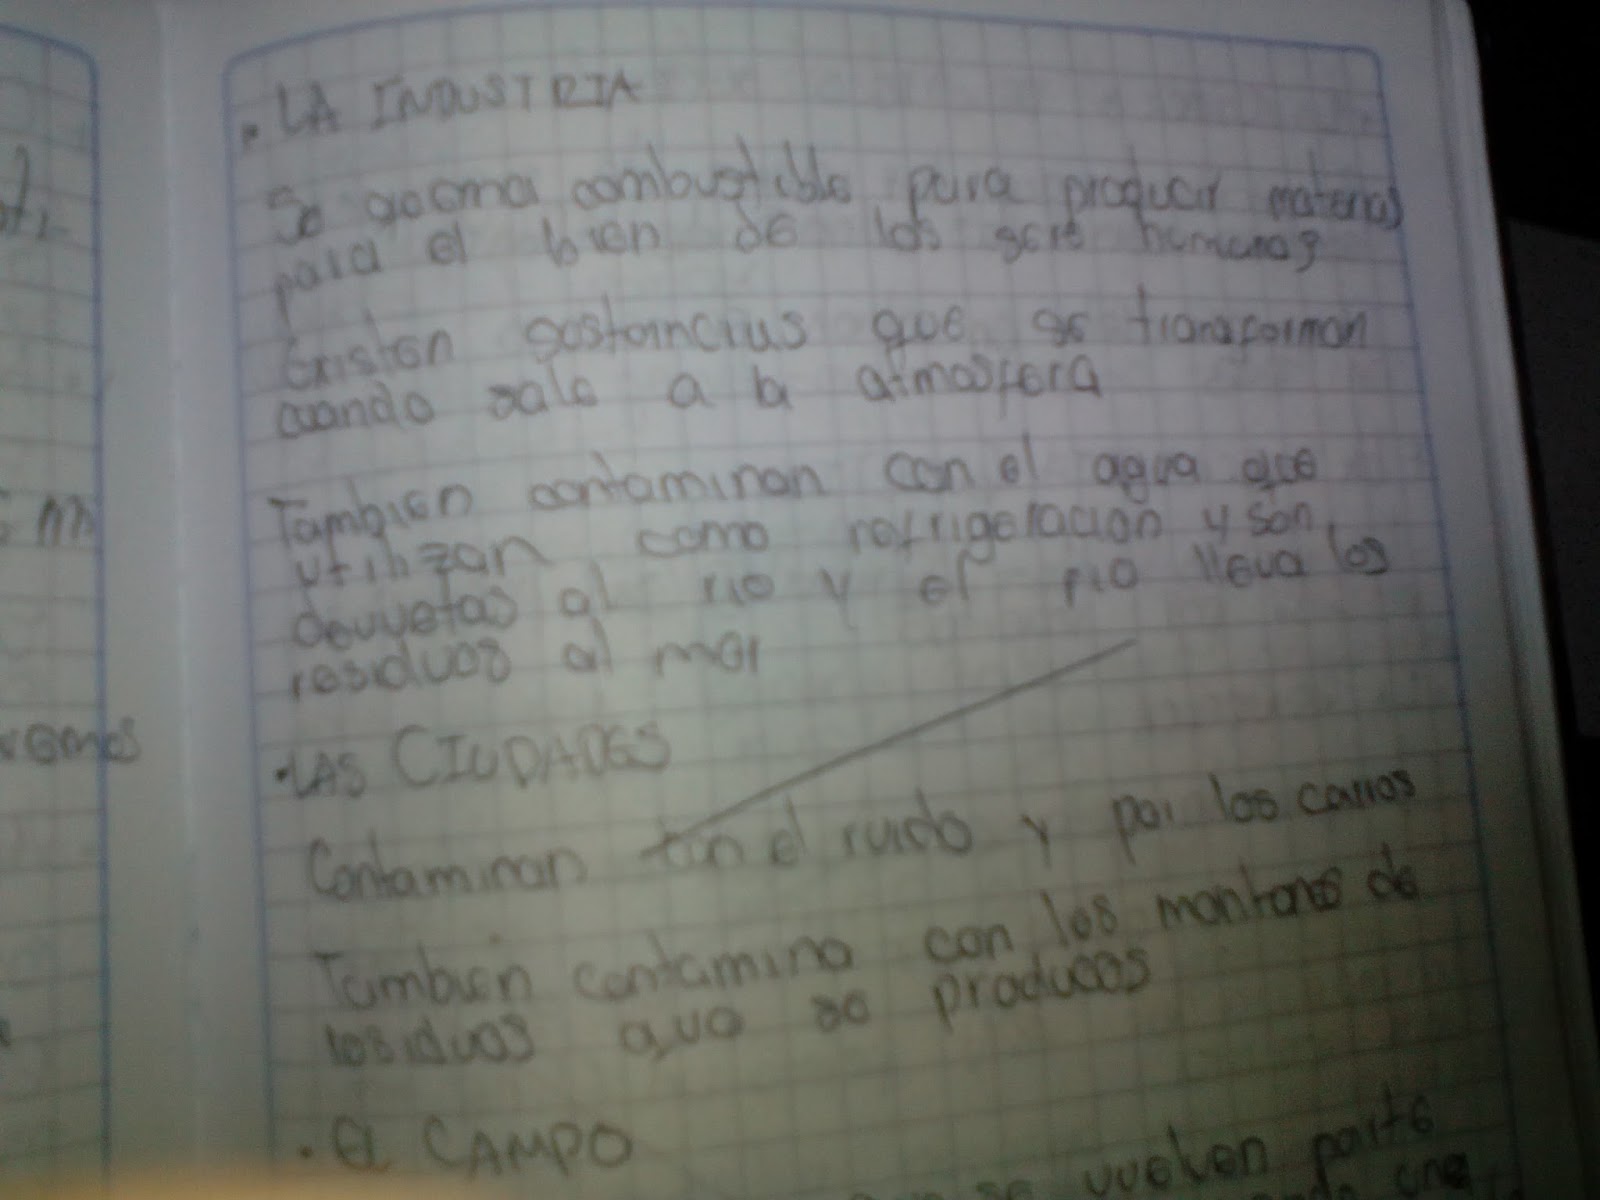 . LA INDUSTRIA
Se geoma combustible para producir materias
para el bien de los seres humanos
Existen sostancias que se transforman
cuando sale a la atmosfera
Tambien contaminan con el agua que
utilizan como refrigeracion y son
devuetas al rio y el rio lleva los
residuos al mar
. LAS CIUDADES
Contaminan con el ruido y por los carros
Tambien contamina con los montones de
residuos que se producos
. El CAMPO
se vuelven parte